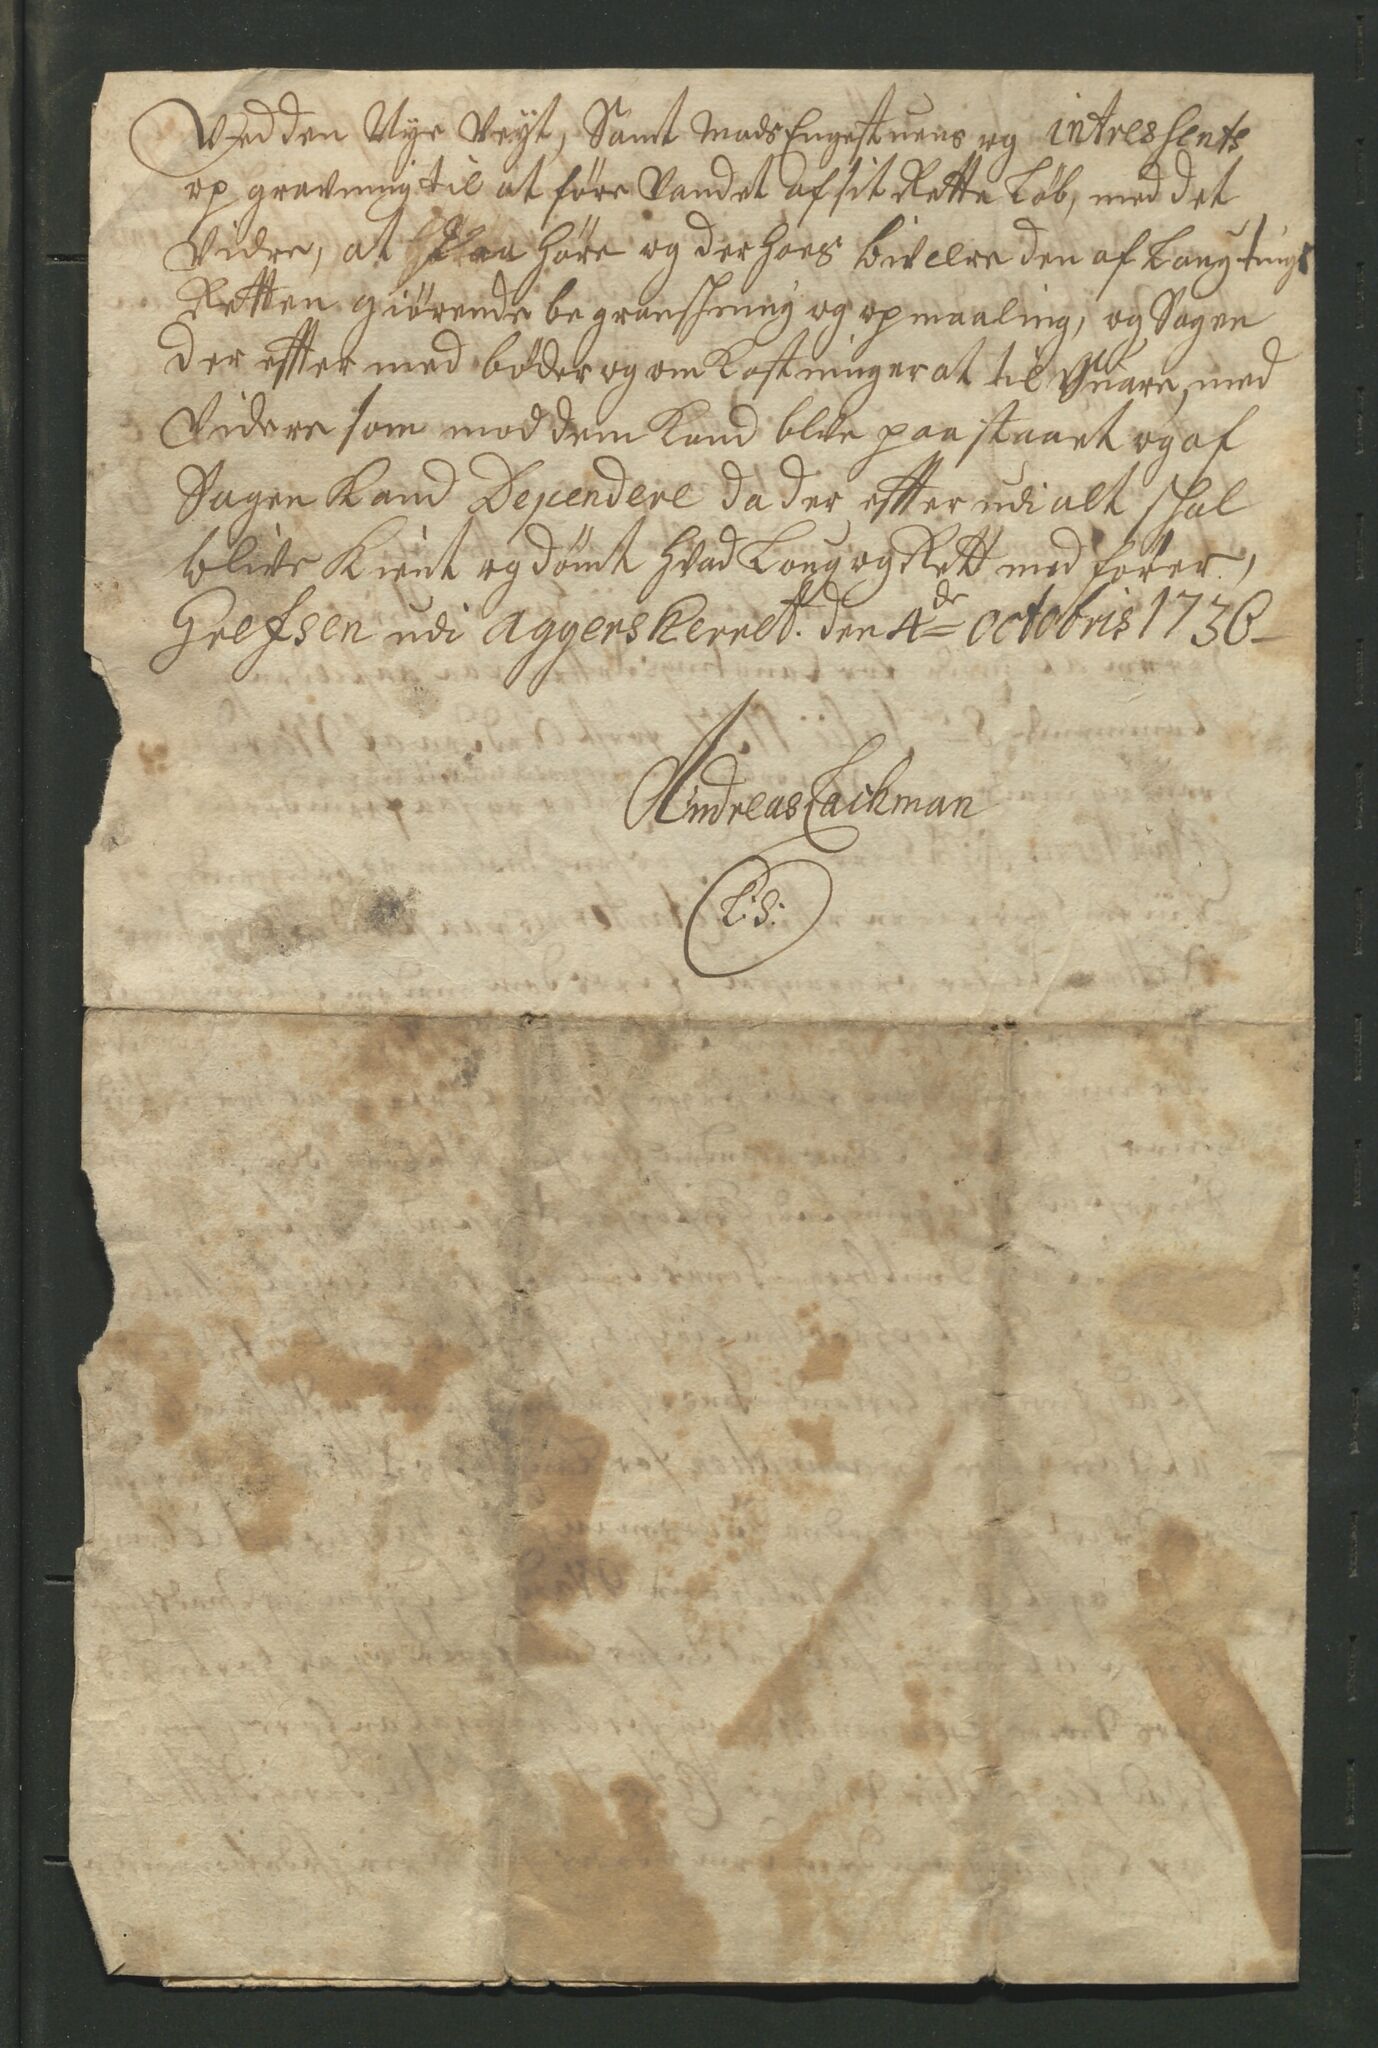 Ved den Nye Veyt, Samt Mads Engestuens og intressents
op gravning til at före Vandet af sit Rette Löb, med det
Vidre, at paa höre og der hoes bivære den af Laugtings
Retten giörende begranskning og opmaaling, og Sagen
der effter med böder og om Kostninger at til Svare, med
Videre som mod dem kand blive paastaaet og af
Sagen kand Dependere da der effter udi alt skal
blive kient og dömt hvad Loug og Rett med förer,
Grefsen udi Aggers herret. den 4de octobris 1736
Andreas Lachman
L:S: